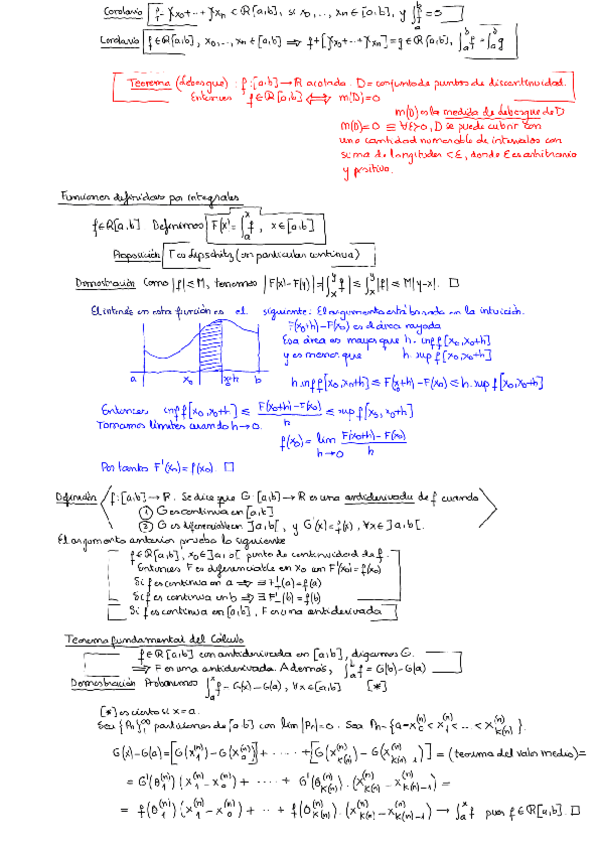 Corolario f = χx₀+···+χxₙ ∈ R[a,b], si x₀,..,xₙ ∈ [a,b], y ∫ₐᵇ f = 0
Corolario f ∈ R[a,b], x₀,...,xₙ ∈ [a,b] ⟹ f+[χx₀+···+χxₙ] = g ∈ R[a,b], ∫ₐᵇ f = ∫ₐᵇ g
Teorema (Lebesgue) : f:[a,b]→R acotada. D = conjunto de puntos de discontinuidad.
Entonces f ∈ R[a,b] ⟺ m(D)=0
m(D) es la medida de Lebesgue de D
m(D)=0 ≡ ∀ε>0, D se puede cubrir con
una cantidad numerable de intervalos con
suma de longitudes < ε, donde ε es arbitrario
y positivo.
Funciones definidas por integrales
f ∈ R[a,b] Definimos F(x) = ∫ₐˣ f, x ∈ [a,b]
Proposición F es Lipschitz (en particular continua)
Demostración Como |f| ≤ M, tenemos |F(x)-F(y)| = |∫ₓʸ f| ≤ ∫ₓʸ |f| ≤ M|y-x|. □
El interés en esta función es el siguiente: El argumento está basado en la intuición.
F(x₀+h)-F(x₀) es el área rayada
Esa área es mayor que h. inf f[x₀,x₀+h]
y es menor que h. sup f[x₀,x₀+h]
a x₀ x₀+h b
h.inf f[x₀,x₀+h] ≤ F(x₀+h)-F(x₀) ≤ h.sup f[x₀,x₀+h]
Entonces inf f[x₀,x₀+h] ≤ (F(x₀+h)-F(x₀))/h ≤ sup f[x₀,x₀+h]
Tomamos límites cuando h→0.
f(x₀) = lim h→0 (F(x₀+h)-F(x₀))/h
Por tanto F'(x₀)=f(x₀). □
Definición f:[a,b]→R. Se dice que G:[a,b]→R es una antiderivada de f cuando
① G es continua en [a,b]
② G es diferenciable en ]a,b[, y G'(x)=f(x), ∀x∈]a,b[.
El argumento anterior prueba lo siguiente
f∈R[a,b], x₀∈]a,b[ punto de continuidad de f.
Entonces F es diferenciable en x₀ con F'(x₀)=f(x₀)
Si f es continua en a ⟹ ∃F'₊(a)=f(a)
Si f es continua en b ⟹ ∃F'₋(b)=f(b)
Si f es continua en [a,b], F es una antiderivada
Teorema fundamental del Cálculo
f∈R[a,b] con antiderivada en [a,b], digamos G.
⟹ F es una antiderivada. Además, ∫ₐᵇ f = G(b)-G(a)
Demostración Probaremos ∫ₐˣ f = G(x)-G(a), ∀x∈[a,b] [*]
[*] es cierto si x=a.
Sea {Pₙ}₁^∞ particiones de [a,b] con lim |Pₙ|=0. Sea Pₙ={a=x₀⁽ⁿ⁾<x₁⁽ⁿ⁾<...<x_{k(n)}⁽ⁿ⁾}.
G(x)-G(a)=[G(x₁⁽ⁿ⁾)-G(x₀⁽ⁿ⁾)]+·····+[G(x_{k(n)}⁽ⁿ⁾)-G(x_{k(n)-1}⁽ⁿ⁾)] = (teorema del valor medio)=
= G'(θ₁⁽ⁿ⁾)(x₁⁽ⁿ⁾-x₀⁽ⁿ⁾)+····+G'(θ_{k(n)}⁽ⁿ⁾).(x_{k(n)}⁽ⁿ⁾-x_{k(n)-1}⁽ⁿ⁾)=
= f(θ₁⁽ⁿ⁾)(x₁⁽ⁿ⁾-x₀⁽ⁿ⁾)+··+f(θ_{k(n)}⁽ⁿ⁾).(x_{k(n)}⁽ⁿ⁾-x_{k(n)-1}⁽ⁿ⁾) → ∫ₐˣ f pues f∈R[a,b]. □